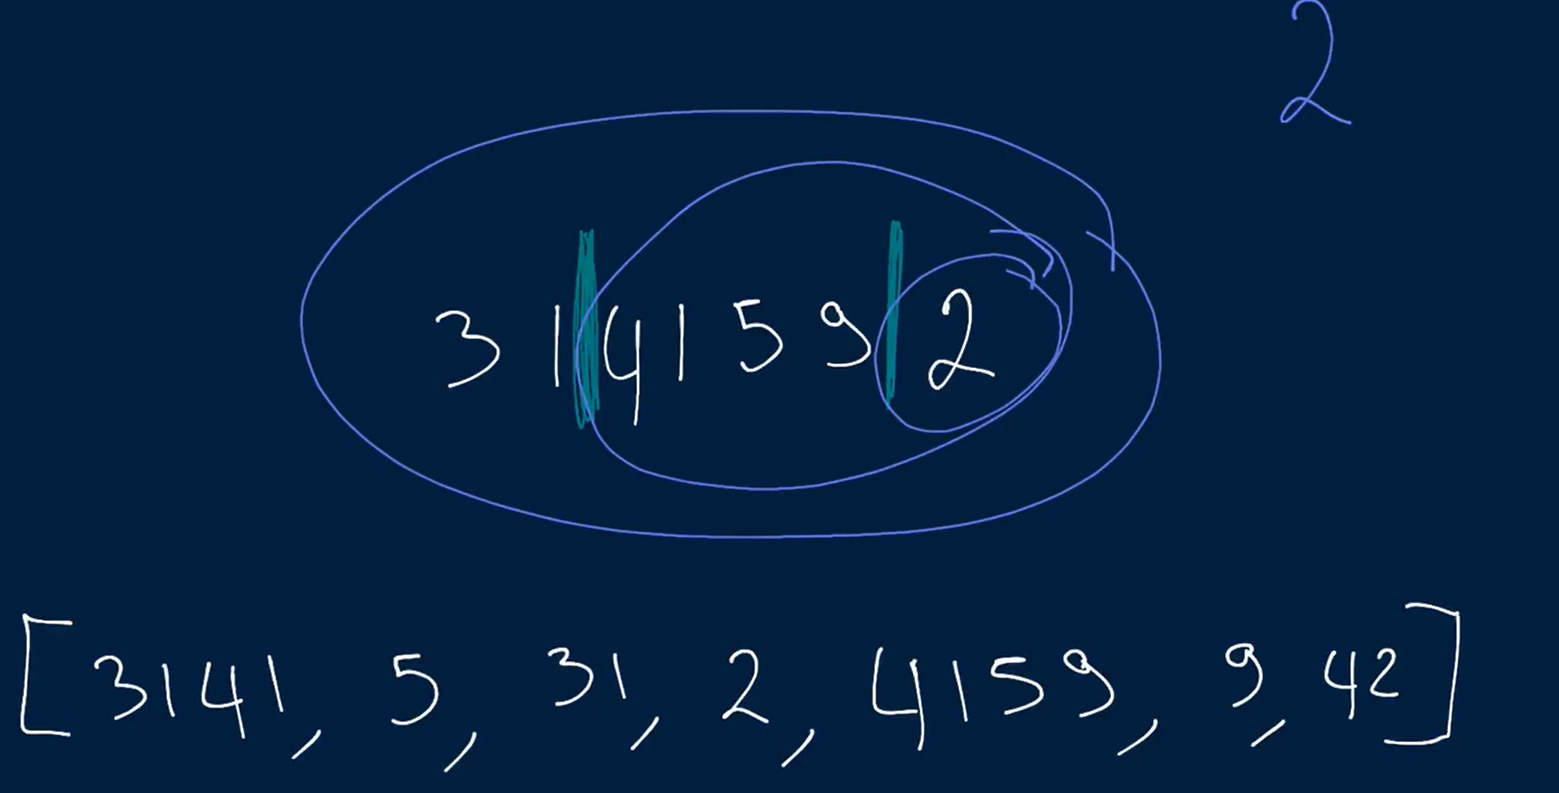 2
3 1 4 1 5 9 2
[3141, 5, 31, 2, 4159, 9, 42]